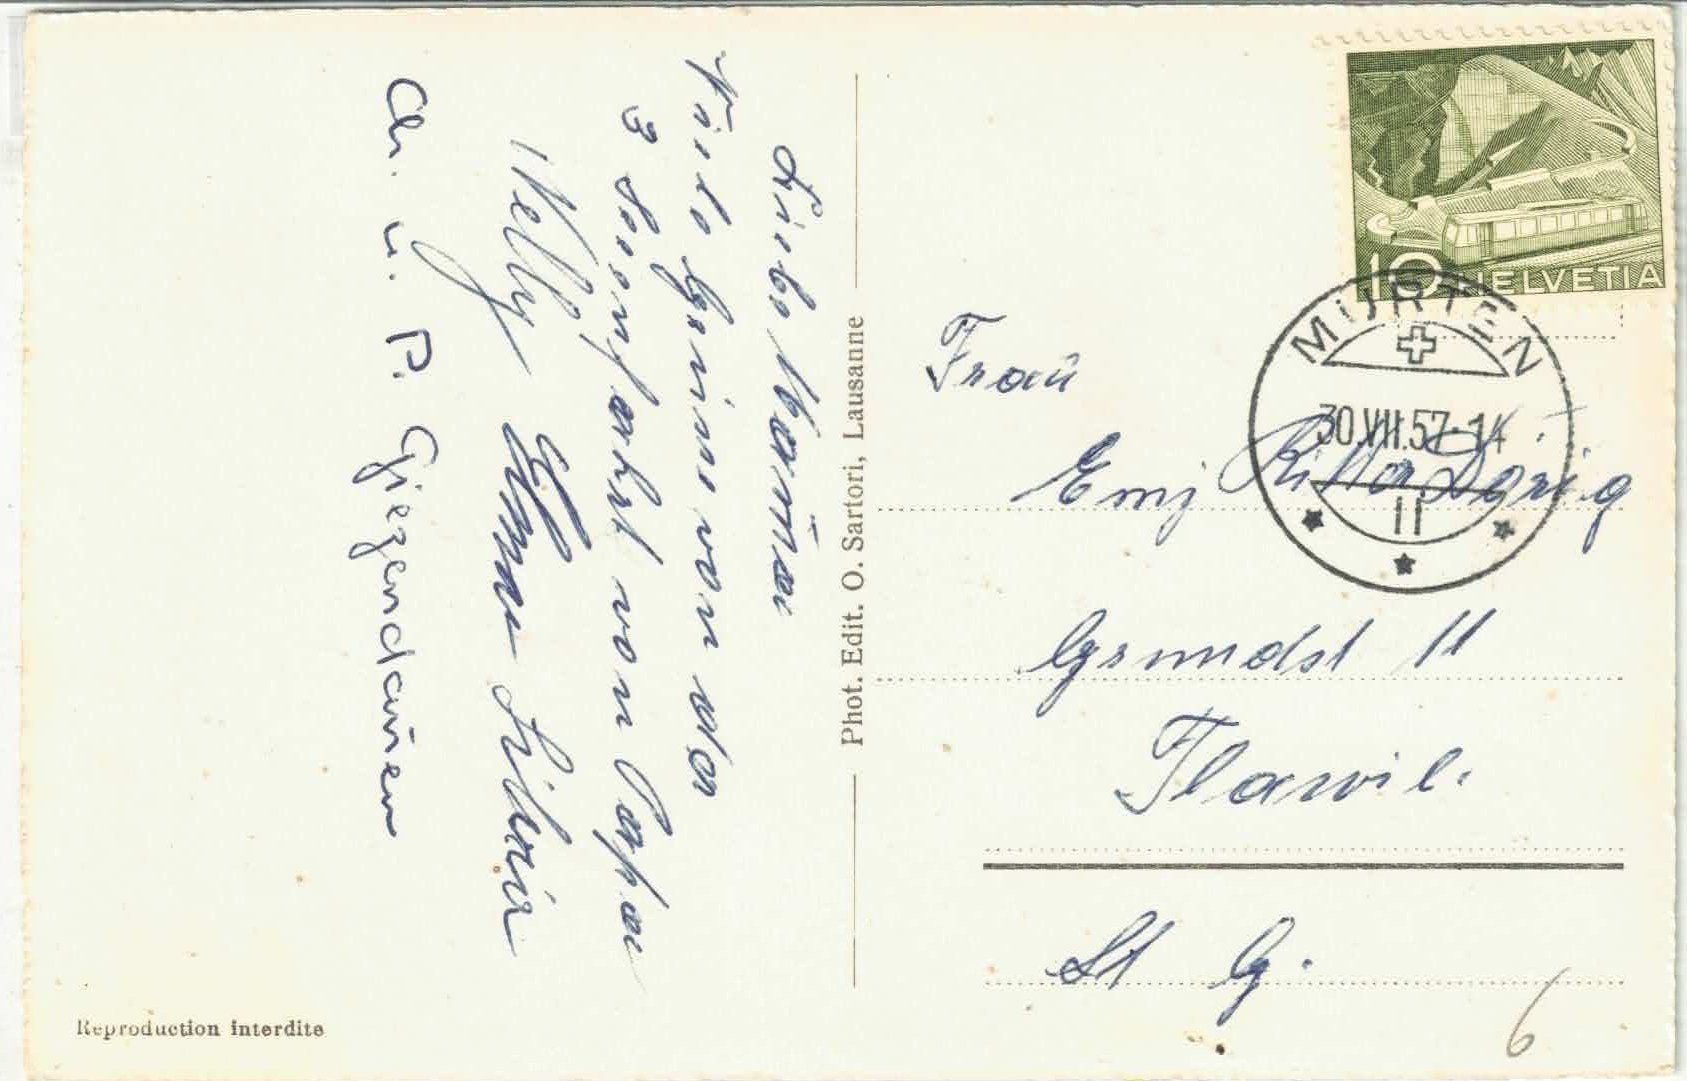 Liebe Mama
Viele Grüsse von der
3 Seenfahrt von Papa
Nelly Silvia
Ch. u. P. Giezendanner
Phot. Edit. O. Sartori, Lausanne
Reproduction interdite
10 HELVETIA
MURTEN
30.VII.57-14
11
Frau
Emj
Grundst 11
Flawil.
St G.
6